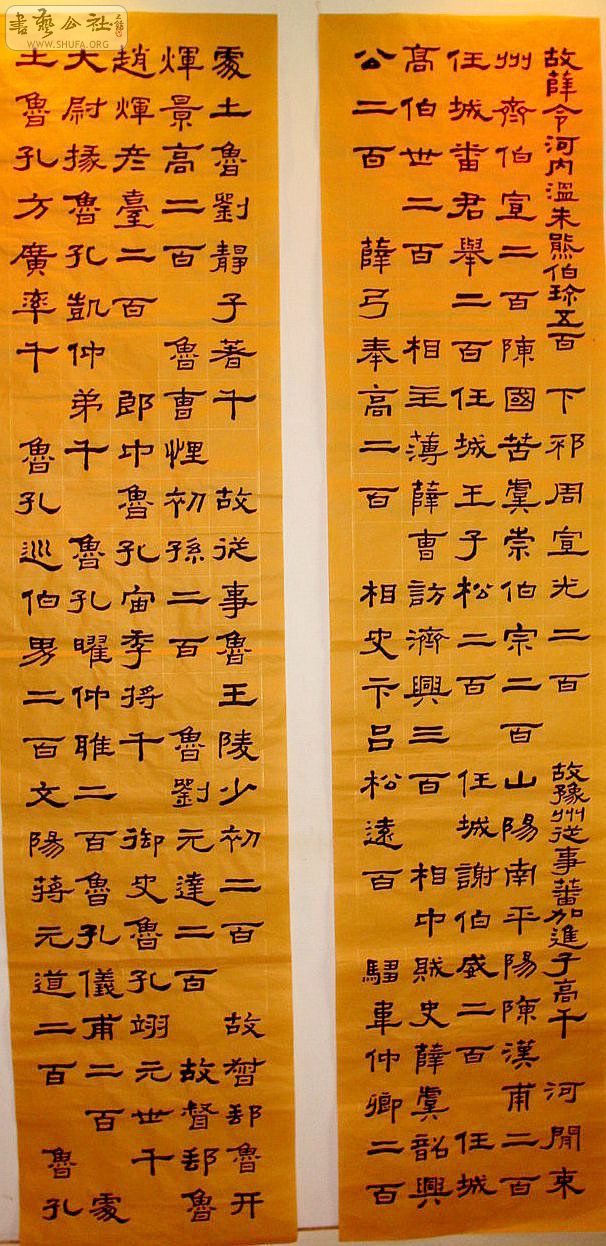 書藝公社
WWW.SHUFA.ORG
故薛令河内溫朱熊伯珍五百 下邳周宣光二百 故豫州從事蕃加進子高千 河間東
州齊伯宣二百陳國苦虞崇伯宗二百 山陽南平陽陳漢甫二百
任城番君舉二百任城王子松二百 任城謝伯威二百 任城
高伯世二百 相主薄薛曹訪濟興三百 相中賊史薛虞韶興
公二百 薛弓奉高二百 相史卞呂松遠百 騶韋仲卿二百
處土魯劉靜子著千 故從事魯王陵少初二百 故督郵魯开
煇景高二百 魯曹悝初孫二百 魯劉元達二百 故督郵魯
趙煇彥臺二百 郎中魯孔宙季將千 御史魯孔翊元世千
大尉掾魯孔凱仲弟千 魯孔曜仲雅二百魯孔儀甫二百 處
土魯孔方廣率千 魯孔巡伯男二百文陽蔣元道二百 魯孔